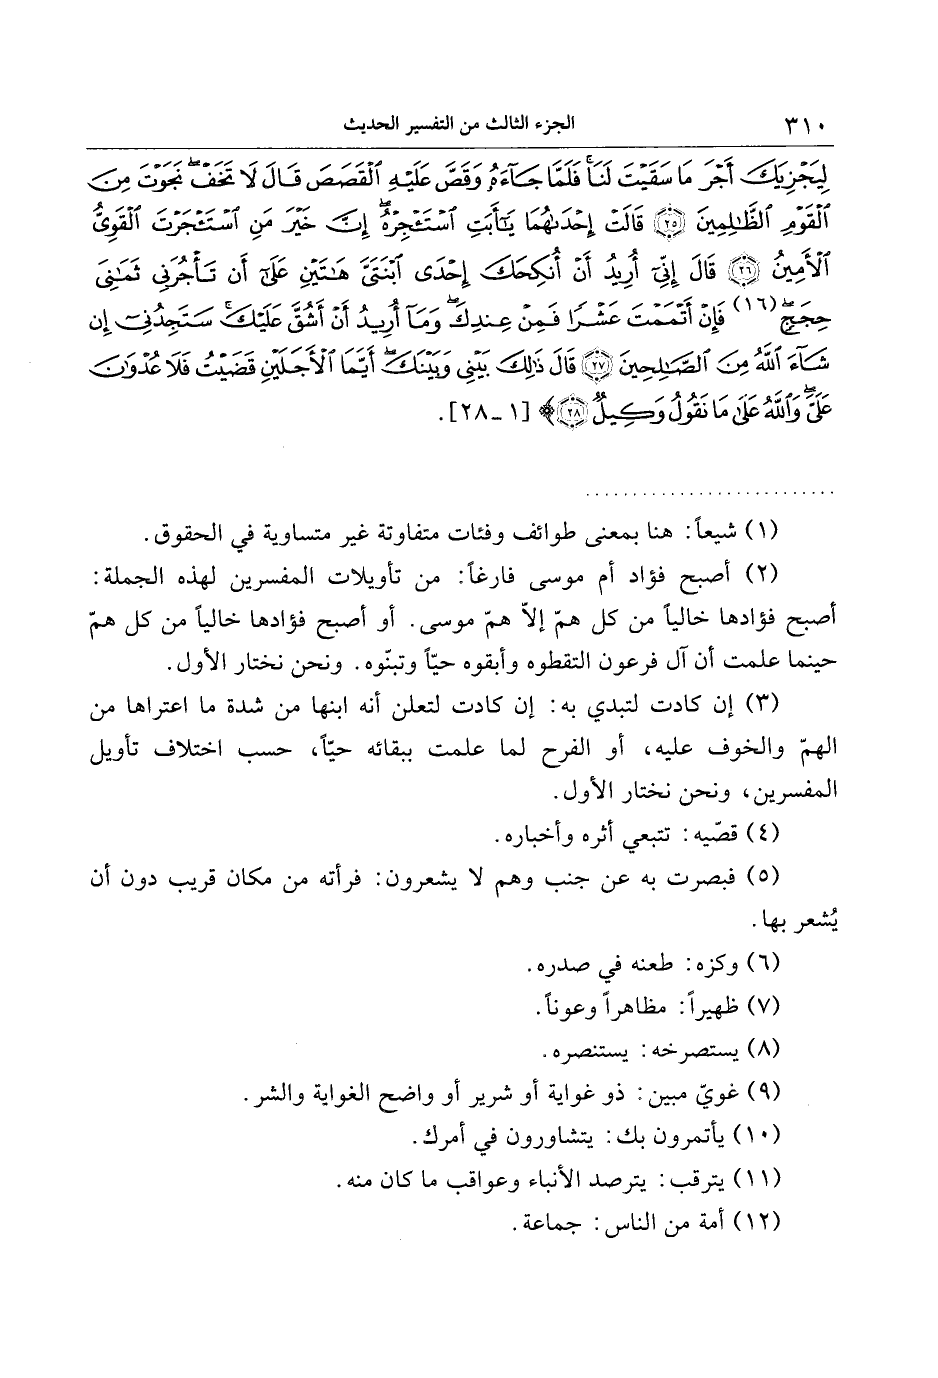 ٣١٠ الجزء الثالث من التفسير الحديث
لِيَجْزِيَكَ أَجْرَ مَا سَقَيْتَ لَنَا ۚ فَلَمَّا جَآءَهُۥ وَقَصَّ عَلَيْهِ ٱلْقَصَصَ قَالَ لَا تَخَفْ ۖ نَجَوْتَ مِنَ
ٱلْقَوْمِ ٱلظَّٰلِمِينَ ﴿٢٥﴾ قَالَتْ إِحْدَىٰهُمَا يَٰٓأَبَتِ ٱسْتَـْٔجِرْهُ ۖ إِنَّ خَيْرَ مَنِ ٱسْتَـْٔجَرْتَ ٱلْقَوِىُّ
ٱلْأَمِينُ ﴿٢٦﴾ قَالَ إِنِّىٓ أُرِيدُ أَنْ أُنكِحَكَ إِحْدَى ٱبْنَتَىَّ هَٰتَيْنِ عَلَىٰٓ أَن تَأْجُرَنِى ثَمَٰنِىَ
حِجَجٍ ۖ (١٦) فَإِنْ أَتْمَمْتَ عَشْرًا فَمِنْ عِندِكَ ۖ وَمَآ أُرِيدُ أَنْ أَشُقَّ عَلَيْكَ ۚ سَتَجِدُنِىٓ إِن
شَآءَ ٱللَّهُ مِنَ ٱلصَّٰلِحِينَ ﴿٢٧﴾ قَالَ ذَٰلِكَ بَيْنِى وَبَيْنَكَ ۖ أَيَّمَا ٱلْأَجَلَيْنِ قَضَيْتُ فَلَا عُدْوَٰنَ
عَلَىَّ ۖ وَٱللَّهُ عَلَىٰ مَا نَقُولُ وَكِيلٌ ﴿٢٨﴾﴾ [١ ـ ٢٨].
..........................
(١) شيعاً: هنا بمعنى طوائف وفئات متفاوتة غير متساوية في الحقوق.
(٢) أصبح فؤاد أم موسى فارغاً: من تأويلات المفسرين لهذه الجملة:
أصبح فؤادها خالياً من كل همّ إلاّ همّ موسى. أو أصبح فؤادها خالياً من كل همّ
حينما علمت أن آل فرعون التقطوه وأبقوه حيّاً وتبنّوه. ونحن نختار الأول.
(٣) إن كادت لتبدي به: إن كادت لتعلن أنه ابنها من شدة ما اعتراها من
الهمّ والخوف عليه، أو الفرح لما علمت ببقائه حيّاً، حسب اختلاف تأويل
المفسرين، ونحن نختار الأول.
(٤) قصّيه: تتبعي أثره وأخباره.
(٥) فبصرت به عن جنب وهم لا يشعرون: فرأته من مكان قريب دون أن
يُشعر بها.
(٦) وكزه: طعنه في صدره.
(٧) ظهيراً: مظاهراً وعوناً.
(٨) يستصرخه: يستنصره.
(٩) غويّ مبين: ذو غواية أو شرير أو واضح الغواية والشر.
(١٠) يأتمرون بك: يتشاورون في أمرك.
(١١) يترقب: يترصد الأنباء وعواقب ما كان منه.
(١٢) أمة من الناس: جماعة.